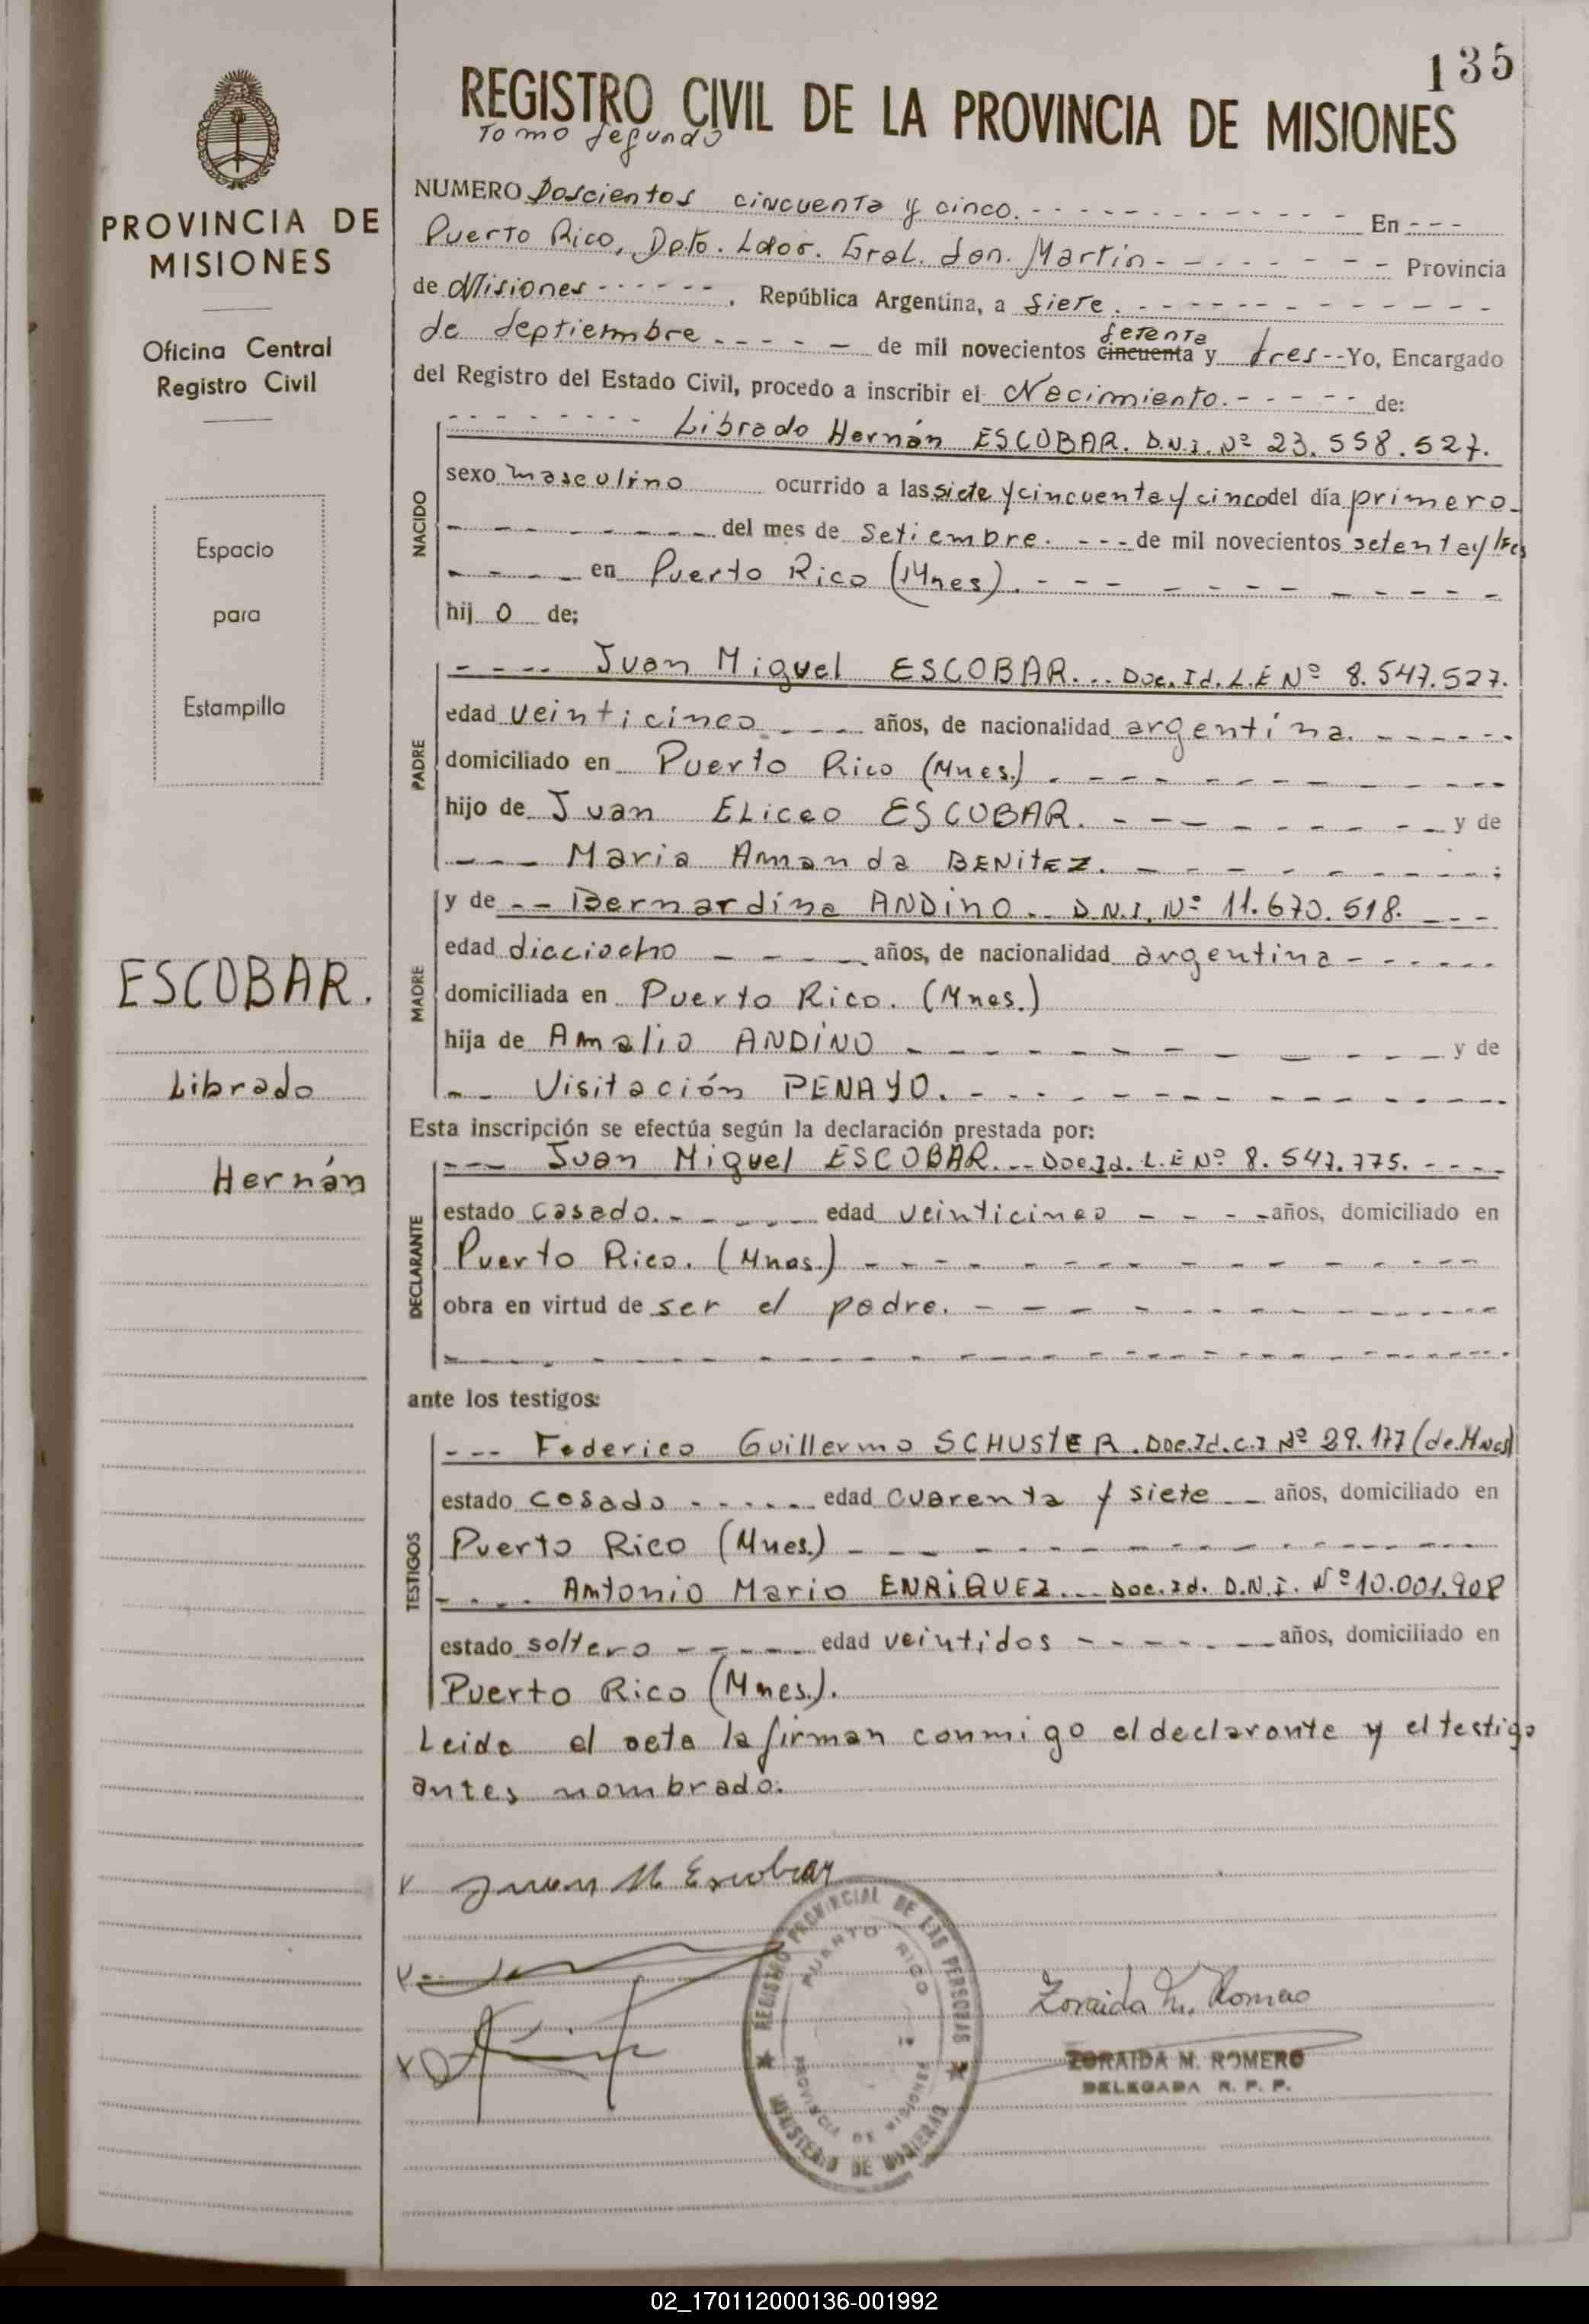 135
REGISTRO CIVIL DE LA PROVINCIA DE MISIONES
Tomo Segundo
PROVINCIA DE
MISIONES
Oficina Central
Registro Civil
Espacio
para
Estampilla
ESCOBAR.
Librado
Hernán
NUMERO Doscientos cincuenta y cinco. - - - En - - -
Puerto Rico, Dpto. Ldor. Gral. San. Martín - - - Provincia
de Misiones - - - . República Argentina, a siete. - - -
de septiembre - - - de mil novecientos cincuenta y setenta tres -- Yo, Encargado
del Registro del Estado Civil, procedo a inscribir el Nacimiento. - - - de:
- - - Librado Hernán ESCOBAR. D.N.I. Nº 23.558.527.
NACIDO
sexo masculino ocurrido a las siete y cincuenta y cinco del día primero -
- - - del mes de Setiembre. - - - de mil novecientos setenta y tres
- - - en Puerto Rico (Mnes). - - -
hij o de;
PADRE
- - - Juan Miguel ESCOBAR. .. Doc. Id. L.E Nº 8.547.527.
edad veinticinco - - - años, de nacionalidad argentina. - - -
domiciliado en Puerto Rico (Mnes.) . - - -
hijo de Juan Eliceo ESCOBAR. - - - y de
- - - Maria Amanda BENitEZ. - - - ;
MADRE
y de - - Bernardina ANDino. - D.N.I. Nº 11.670.518. - - -
edad dieciocho - - - años, de nacionalidad argentina - - -
domiciliada en Puerto Rico. (Mnes.)
hija de Amalio ANDINO - - - y de
- - Visitación PENAYO. - - -
Esta inscripción se efectúa según la declaración prestada por:
DECLARANTE
- - - Juan Miguel ESCOBAR. .. Doc. Id. L.E Nº 8.547.775. - - -
estado casado. - - - edad veinticinco - - - años, domiciliado en
Puerto Rico. (Mnes.) - - -
obra en virtud de ser el padre. - - -
ante los testigos:
TESTIGOS
- - - Federico Guillermo SCHUStER. Doc. Id. C.I Nº 29.177 (de Mnes)
estado casado - - - edad cuarenta y siete - años, domiciliado en
Puerto Rico (Mnes.) - - -
- - - Antonio Mario ENRiQUEZ. .. Doc. Id. D.N.I. Nº 10.001.908
estado soltero - - - edad veintidos - - - años, domiciliado en
Puerto Rico (Mnes.).
Leida el acta la firman conmigo el declarante y el testigo
antes nombrado.
x Juan M Escobar
REGISTRO PROVINCIAL DE LAS PERSONAS
PUERTO RICO
PROVINCIA DE MISIONES
MINISTERIO DE GOBIERNO
Zoraida M. Romero
ZORAIDA M. ROMERO
DELEGADA R. P. P.
02_170112000136-001992